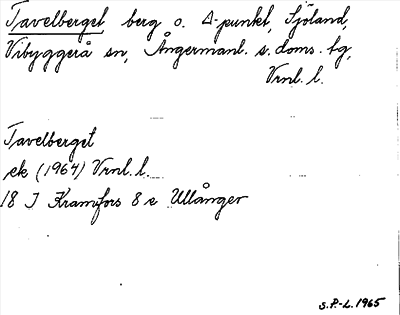 Tavelberget berg o. Δ-punkt, Sjöland,
Vibyggerå sn, Ångermanl. s. doms. tg,
Vrnl. l.
Tavelberget
ek (1964) Vrnl. l.
18 J Kramfors 8 e Ullånger
S.P-L. 1965